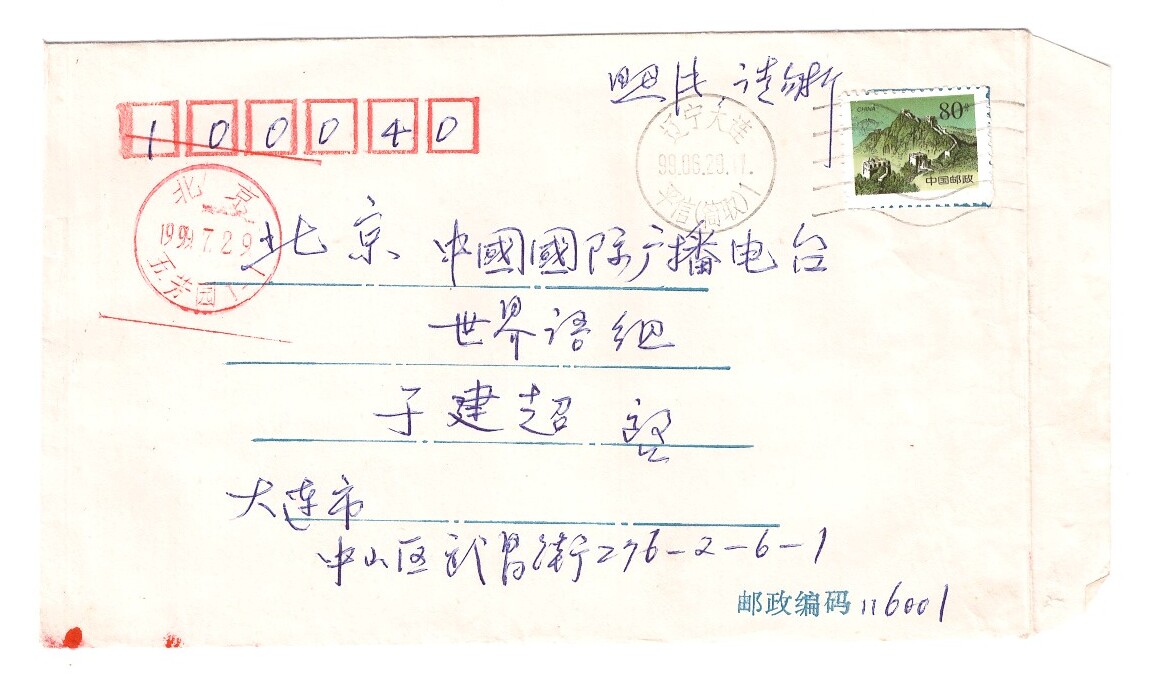 照片,请勿折
100040
CHINA 80分
中国邮政
辽宁大连
99.06.29.17.
北京
1999.7.2.9
北京 中國國际广播电台
世界语组
于建超
大连市
中山区武昌街276-2-6-1
邮政编码 116001